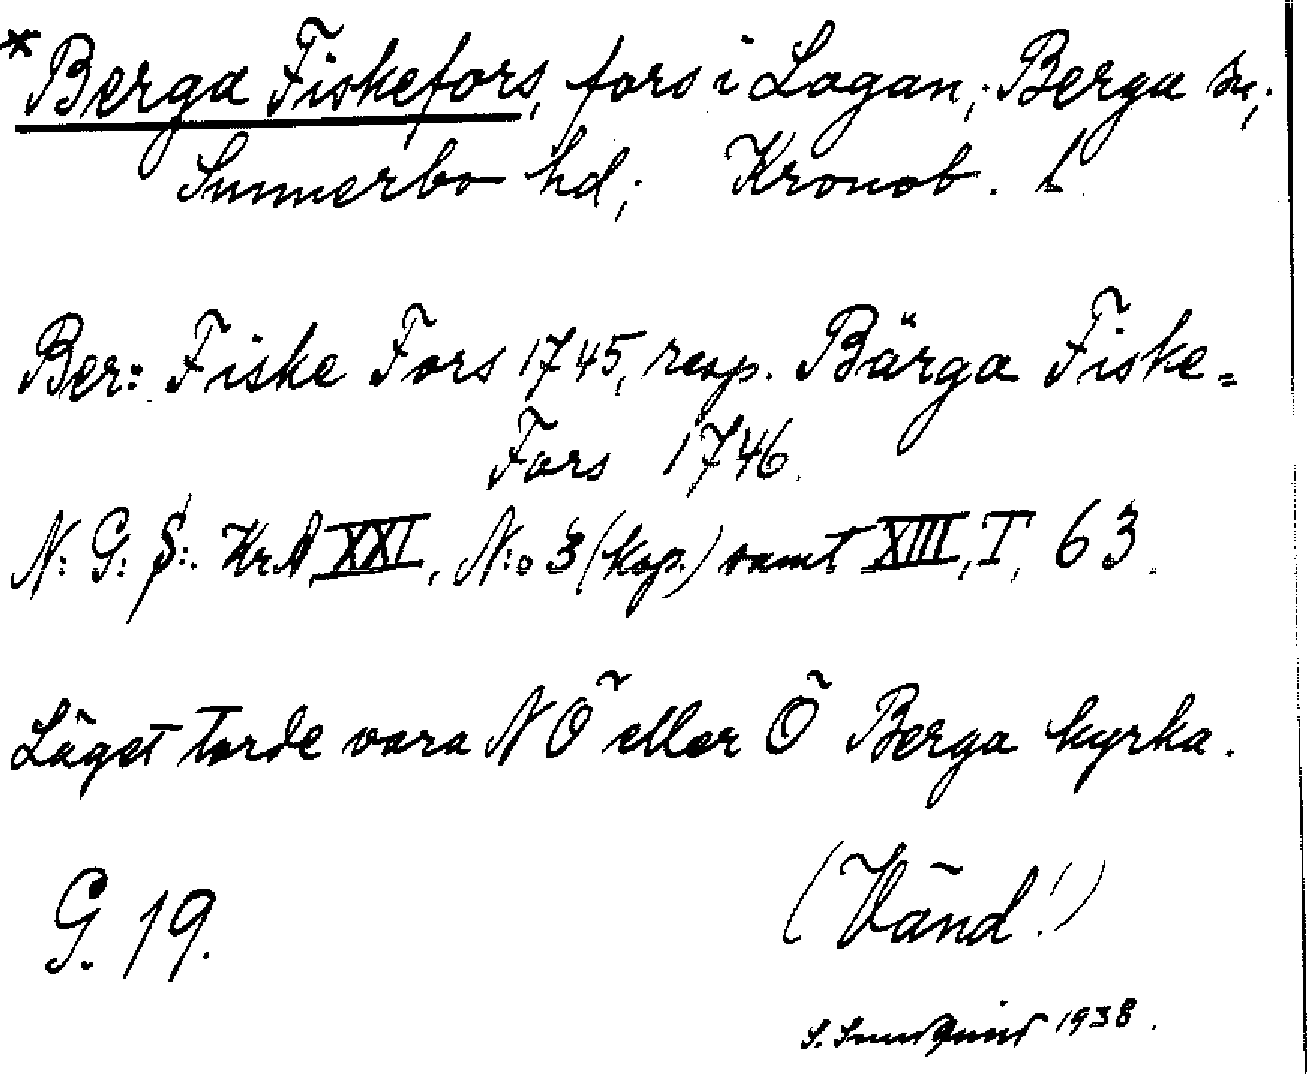 *Berga Fiskefors, fors i Lagan; Berga sn;
Sunnerbo hd; Kronob. L
Ber: Fiske Fors 1745, resp. Bärga Fiske-
Fors 1746.
N: G: §:. KrA XXI, N:o 3 (kop.) samt XIII, I, 63.
Läget torde vara NÖ eller Ö Berga kyrka.
G. 19.
(Vänd!)
S. Sundquist 1938.